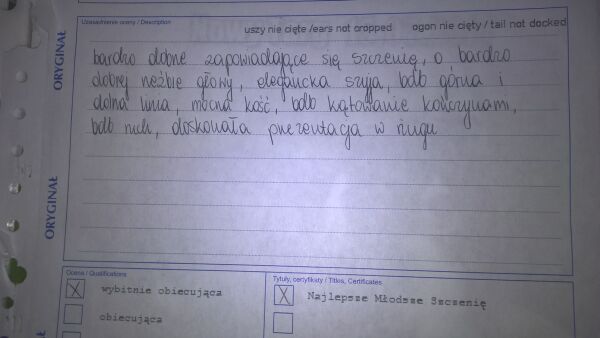 Uzasadnienie oceny / Description
uszy nie cięte /ears not cropped ogon nie cięty / tail not docked
ORYGINAŁ
bardzo dobrze zapowiadające się szczenię, o bardzo
dobrej rzeźbie głowy, elegancka szyja, bdb górna i
dolna linia, mocna kość, bdb kątowanie kończynami,
bdb ruch, doskonała prezentacja w ringu
ORYGINAŁ
Ocena / Qualifications
Tytuły, certyfikaty / Titles, Certificates
X wybitnie obiecująca
X Najlepsze Młodsze Szczenię
obiecująca